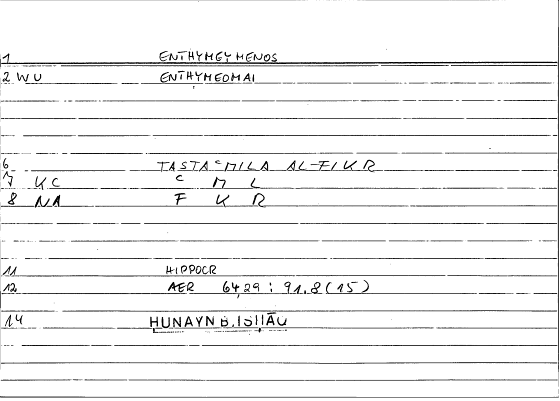 1 ENTHYMEYMENOS
2 WU ENTHYMEOMAI
6 TASTAʿMILA AL-FIKR
7 KC C M L
8 NA F K R
11 HIPPOCR
12 AER 64,29 : 91.8(15)
14 HUNAYN B. ISḤĀQ